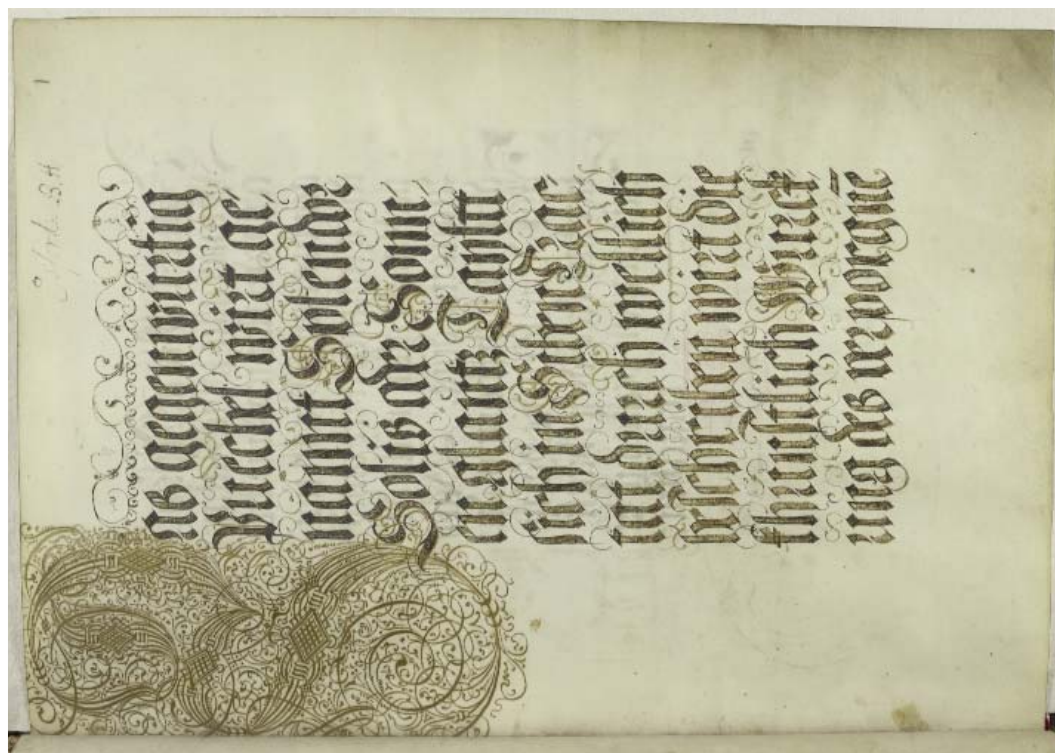 DAS gegenwirtig
Buechel wirt ge,
nannt Splendor
Solis oder Sonne,
nglantz Taylt
sich in Siben Trac,
tat durch welhich
beschriben wirt die
khunstlich Wirckh
ung des verporgne